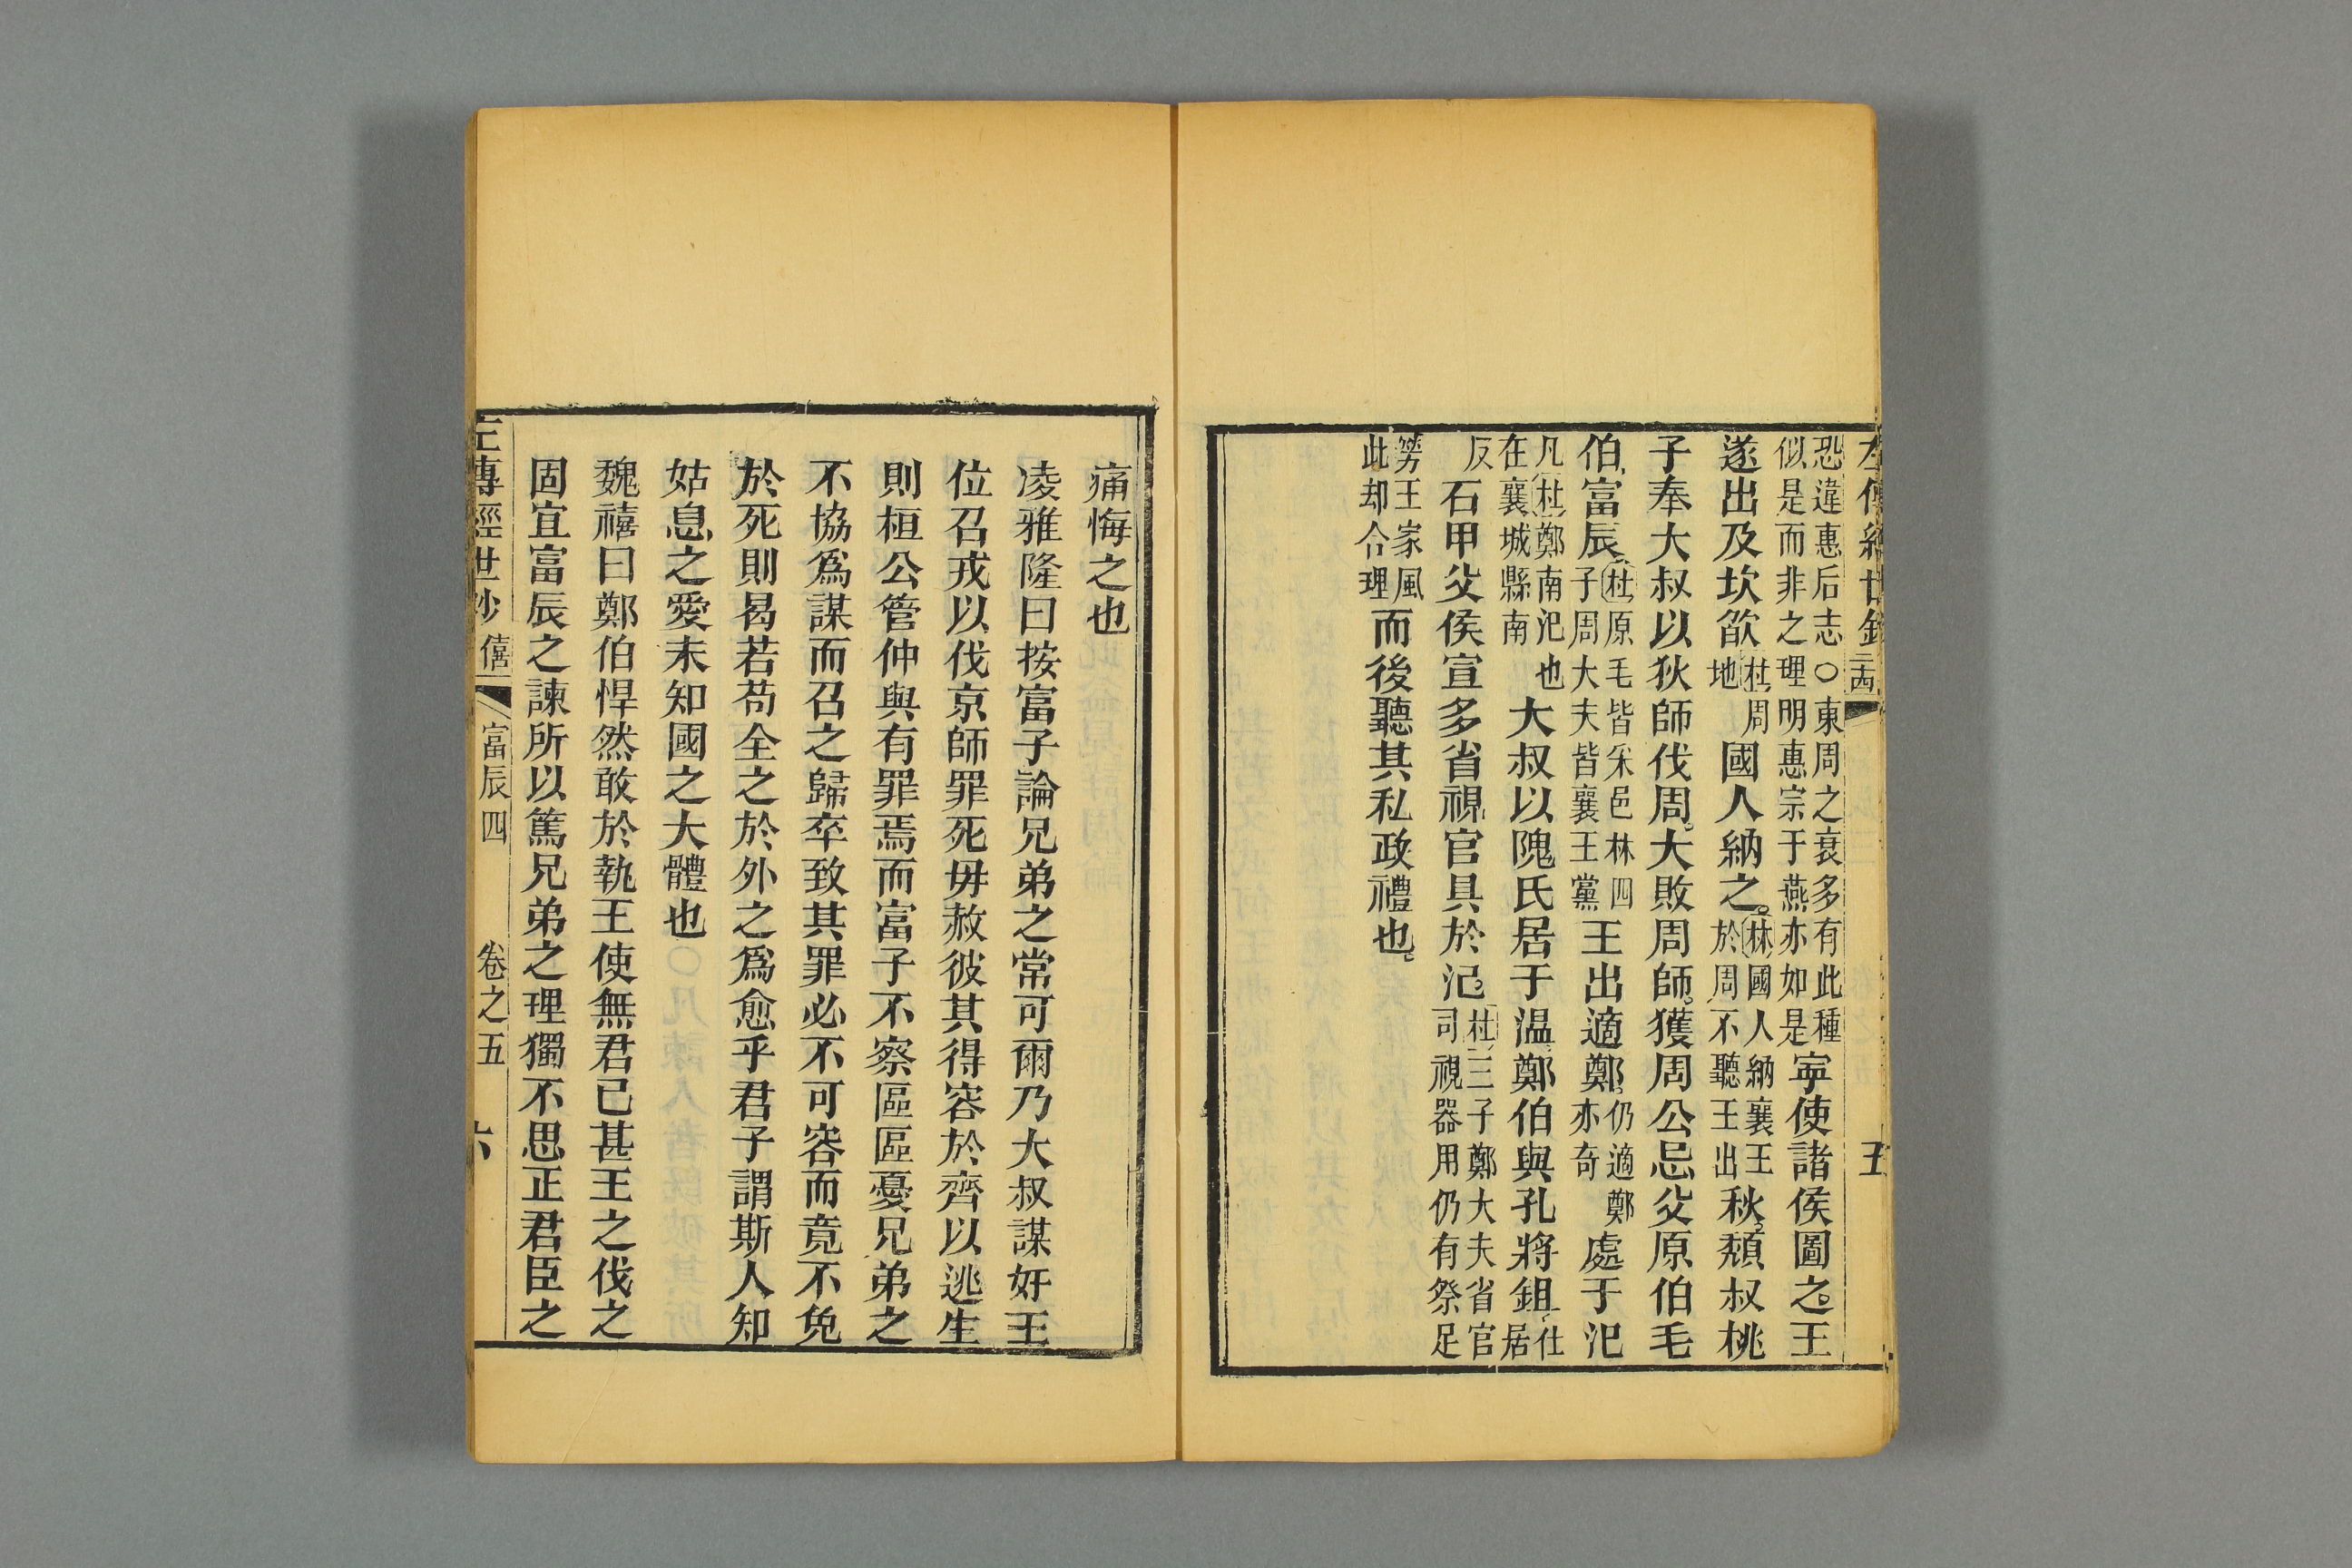 恐違惠后志○東周之衰多有此種
似是而非之理明惠宗于燕亦如是
寜使諸侯圖之王
遂出及坎欿
杜周
地
國人納之
林國人納襄王
於周不聽王出
秋頹叔桃
子奉大叔以狄師伐周大敗周師獲周公忌父原伯毛
伯富辰
杜原毛皆采邑林四
子周大夫皆襄王黨
王出適鄭
仍適鄭
亦奇
處于氾
凡杜鄭南氾也
在襄城縣南
大叔以隗氏居于温鄭伯與孔將鉏
仕
居
反
石甲父侯宣多省視官具於氾
杜三子鄭大夫省官
司視器用仍有祭足
王家風
此却合理
而後聽其私政禮也
五
痛悔之也
凌雅隆曰按富子論兄弟之常可爾乃大叔謀奸王
位召戎以伐京師罪死毋赦彼其得容於齊以逃生
則桓公管仲與有罪焉而富子不察區區憂兄弟之
不協爲謀而召之歸卒致其罪必不可容而竟不免
於死則曷若苟全之於外之爲愈乎君子謂斯人知
姑息之愛未知國之大體也
魏禧曰鄭伯悍然敢於執王使無君已甚王之伐之
固宜富辰之諫所以篤兄弟之理獨不思正君臣之
左傳經世鈔
僖
富辰四
卷之五
六